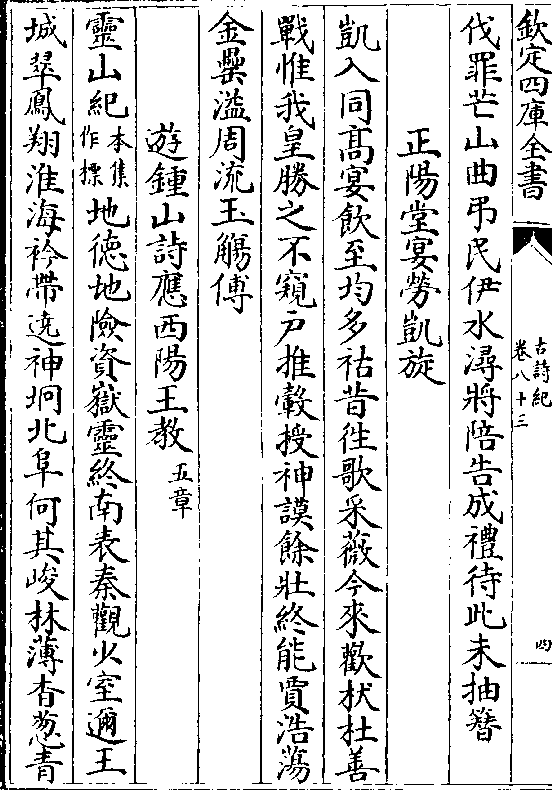 欽定四庫全書
古詩紀
卷八十三
四
伐罪芒山曲弔民伊水潯將陪告成禮待此未抽簪
正陽堂宴勞凱旋
凱入同高宴飲至均多祜昔往歌采薇今來歡杕杜善
戰惟我皇勝之不窺戶推轂授神謨餘壯終能賈浩蕩
金罍溢周流玉觴傳
遊鍾山詩應西陽王教五章
靈山紀本集作摽地德地險資嶽靈終南表秦觀少室邇王
城翠鳳翔淮海衿帶遶神坰北阜何其峻林薄杳葱青